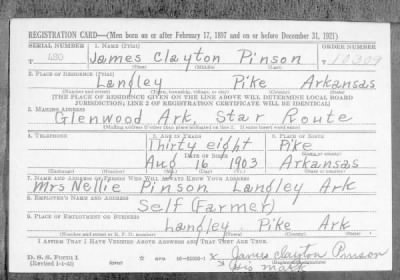 REGISTRATION CARD—(Men born on or after February 17, 1897 and on or before December 31, 1921)
SERIAL NUMBER 1. NAME (Print) ORDER NUMBER
T 430 James Clayton Pinson 10309
(First) (Middle) (Last)
2. PLACE OF RESIDENCE (Print)
Langley Pike Arkansas
(Number and street) (Town, township, village, or city) (County) (State)
[THE PLACE OF RESIDENCE GIVEN ON THE LINE ABOVE WILL DETERMINE LOCAL BOARD
JURISDICTION; LINE 2 OF REGISTRATION CERTIFICATE WILL BE IDENTICAL]
3. MAILING ADDRESS
Glenwood Ark, Star Route
[Mailing address if other than place indicated on line 2. If same insert word same]
4. TELEPHONE 5. AGE IN YEARS 6. PLACE OF BIRTH
Thirty eight Pike
DATE OF BIRTH
Aug 16 1903 Arkansas
7. NAME AND ADDRESS OF PERSON WHO WILL ALWAYS KNOW YOUR ADDRESS
Mrs Nellie Pinson Langley Ark
8. EMPLOYER'S NAME AND ADDRESS
Self (Farmer)
9. PLACE OF EMPLOYMENT OR BUSINESS
Langley Pike Ark
(Number and street or R. F. D. number) (Town) (County) (State)
I AFFIRM THAT I HAVE VERIFIED ABOVE ANSWERS AND THAT THEY ARE TRUE.
D. S. S. Form 1 X James Clayton Pinson
(Revised 1-1-42) his mark